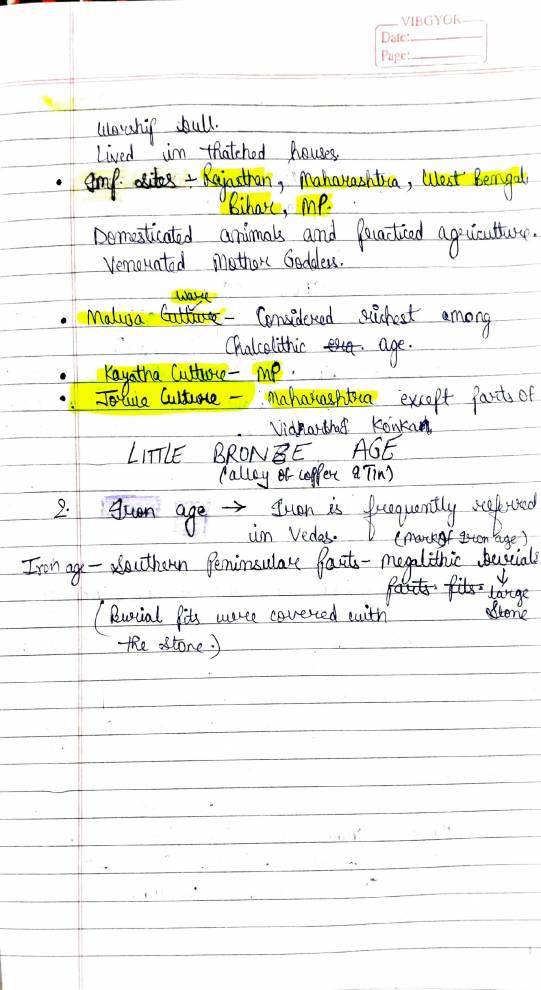 VIBGYOR
Date:
Page:
Worship bull.
Lived in thatched houses
• Imp. sites - Rajasthan, Maharashtra, West Bengal
Bihar, MP.
Domesticated animals and practiced agriculture.
Venerated Mother Goddess.
ware
• Malwa Culture - Considered richest among
Chalcolithic era. age.
• Kayatha Culture - MP.
• Jorwe Culture - Maharashtra except parts of
Vidharbha Konkan
LITTLE BRONZE AGE
(alloy of copper & Tin)
2. Iron age → Iron is frequently referred
in Vedas. (Mark of Iron age)
Iron age - Southern Peninsular parts - megalithic burials
parts. pits. ↓
Large
Stone
(Burial pits were covered with
the stone.)